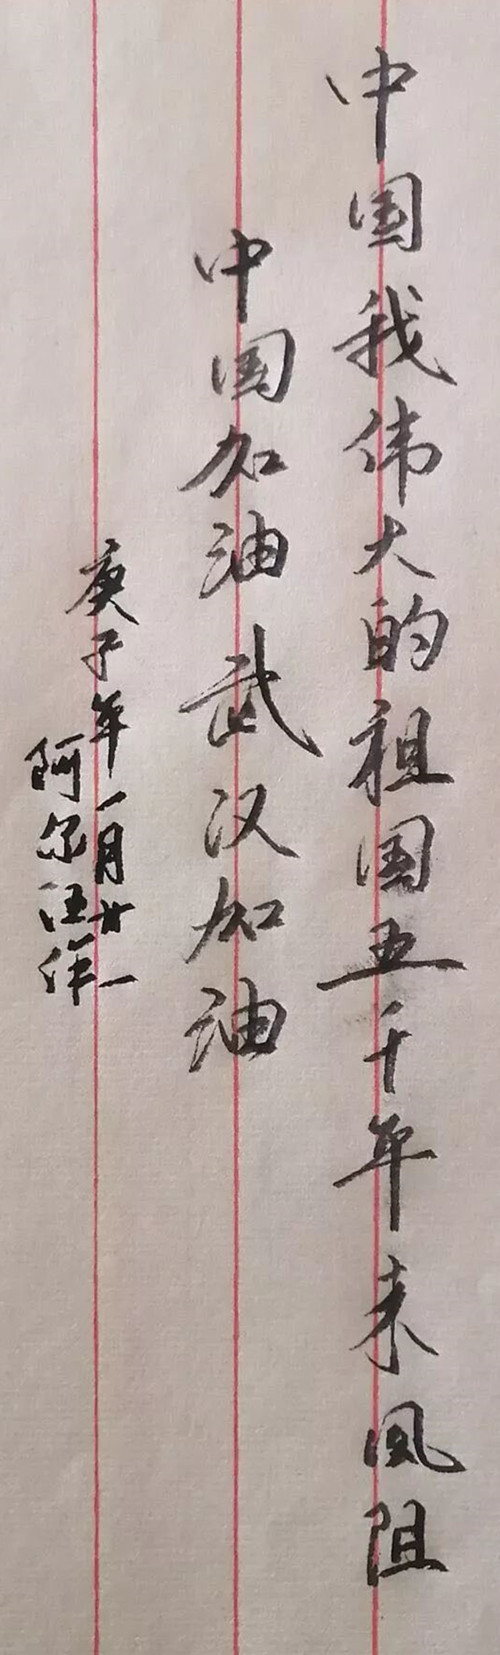 中国我伟大的祖国五千年来风阻
中国加油武汉加油
庚子年一月廿一
阿尔汪作